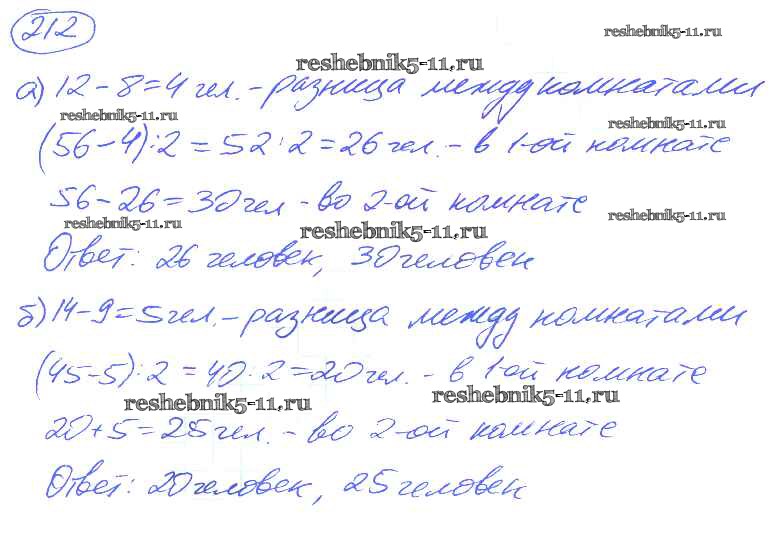 212
reshebnik5-11.ru
reshebnik5-11.ru
а) 12-8=4 чел. - разница между комнатами
reshebnik5-11.ru
reshebnik5-11.ru
(56-4):2=52:2=26 чел. - в 1-ой комнате
56-26=30 чел - во 2-ой комнате
reshebnik5-11.ru
reshebnik5-11.ru
reshebnik5-11.ru
Ответ: 26 человек, 30 человек
б) 14-9=5 чел. - разница между комнатами
(45-5):2=40:2=20 чел. - в 1-ой комнате
reshebnik5-11.ru
reshebnik5-11.ru
20+5=25 чел. - во 2-ой комнате
Ответ: 20 человек, 25 человек